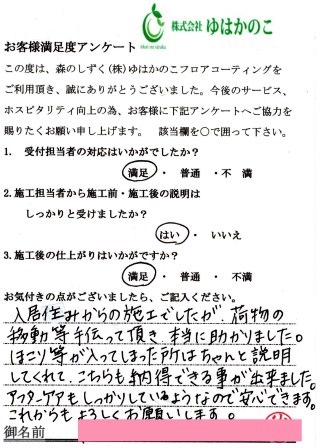 株式会社 ゆはかのこ
お客様満足度アンケート
この度は、森のしずく(株)ゆはかのこフロアコーティングを
ご利用頂き、誠にありがとうございました。今後のサービス、
ホスピタリティ向上の為、お客様に下記アンケートへご協力を
賜りたくお願い申し上げます。 該当欄を○で囲って下さい。
1. 受付担当者の対応はいかがでしたか?
満足 ・ 普通 ・ 不満
2. 施工担当者から施工前・施工後の説明は
しっかりと受けましたか?
はい ・ いいえ
3. 施工後の仕上がりはいかがですか?
満足 ・ 普通 ・ 不満
お気付きの点がございましたら、ご記入ください。
入居住みからの施工でしたが、荷物の
移動等手伝って頂き、本当に助かりました。
ほこり等が入ってしまった所はちゃんと説明
してくれて、こちらも納得できる事が出来ました。
アフターケアもしっかりしているようなので安心できます。
これからもよろしくお願いします。
御名前